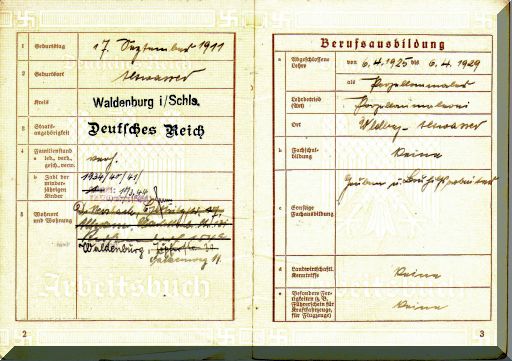 1 Geburtstag 17. September 1911
2 Geburtsort Altwasser
Kreis Waldenburg i/Schls.
3 Staats-
angehörigkeit Deutsches Reich
4 Familienstand
a led., verh.,
gesch., verw. verh.
b Zahl der
minder-
jährigen
Kinder
1934/40/41/
5 Wohnort
und Wohnung
Waldenburg,
Arbeitsbuch
2
Berufsausbildung
a Abgeschlossene
Lehre von 6.4.1925 bis 6.4.1929
als Porzellanmaler
Lehrbetrieb
(Art) Porzellanmalerei
Ort Wldbg.-Altwasser
b Fachschul-
bildung Keine
c Sonstige
Fachausbildung
d Landwirtschaftl.
Kenntnisse Keine
e Besondere Fer-
tigkeiten (z. B.
Führerschein für
Kraftfahrzeuge,
für Flugzeuge) Keine
3